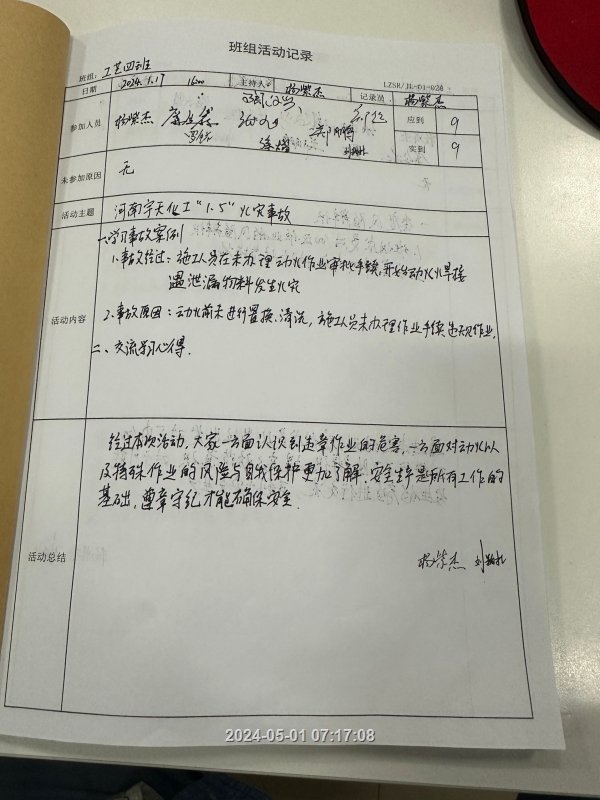 班组活动记录
班组：工艺四班
LZSR/JL-01-028
日期 2024.1.17 16:00 主持人 杨紫杰 记录员 杨紫杰
参加人员 杨紫杰 应到 9
实到 9
未参加原因 无
活动主题 河南宇天化工“1.5”火灾事故
活动内容 一、学习事故案例
1.事故经过：施工人员在未办理动火作业审批手续，开始动火焊接
遇泄漏物料发生火灾
2.事故原因：动火前未进行置换、清洗，施工人员未办理作业手续违规作业。
二、交流学习心得.
活动总结 经过本次活动，大家一方面认识到违章作业的危害，一方面对动火以
及特殊作业的风险与自我保护更加了解，安全生产是所有工作的
基础，遵章守纪才能确保安全.
杨紫杰
2024-05-01 07:17:08